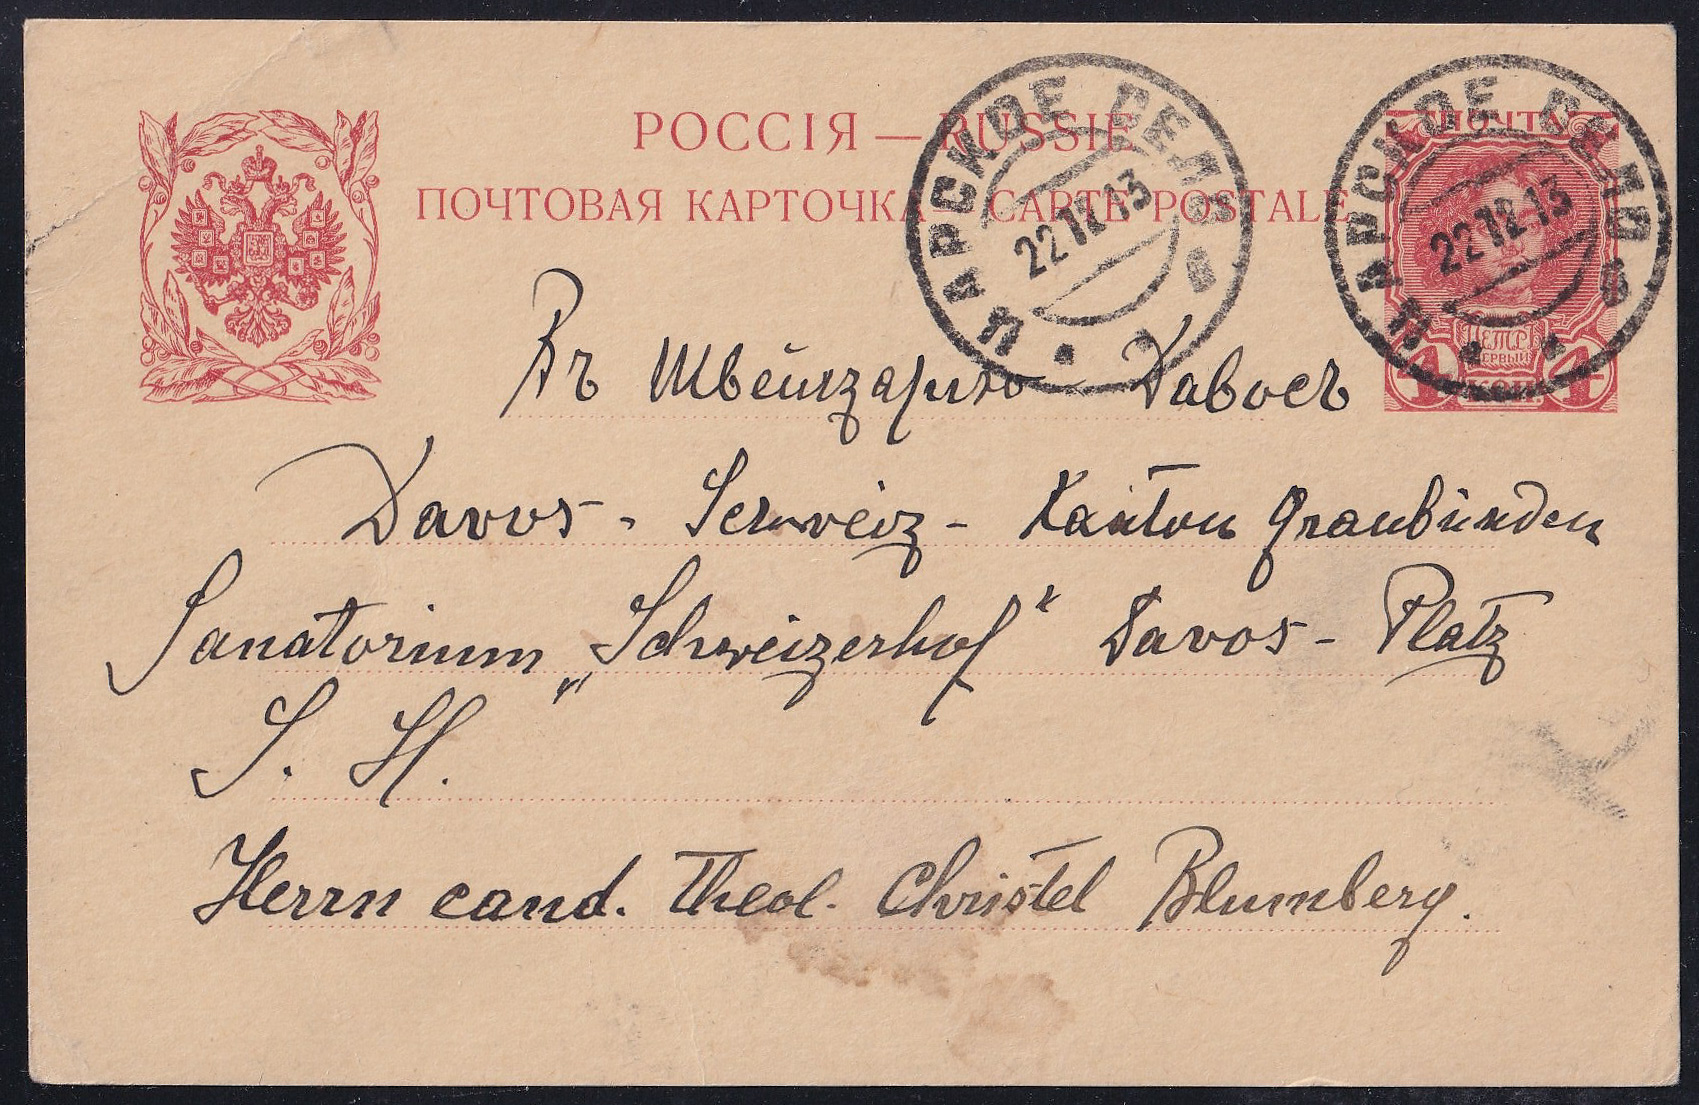 РОССІЯ — RUSSIE
ПОЧТОВАЯ КАРТОЧКА — CARTE POSTALE
ЦАРСКОЕ СЕЛО в
22 12 13
ЦАРСКОЕ СЕЛО в
22 12 13
ПОЧТА
ПЕТРЪ
ПЕРВЫЙ
4 КОП. 4
Въ Швейцарію Давосъ
Davos - Schweiz - Kanton Graubünden
Sanatorium „Schweizerhof“ Davos - Platz
S. H.
Herrn cand. theol. Christel Blumberg.